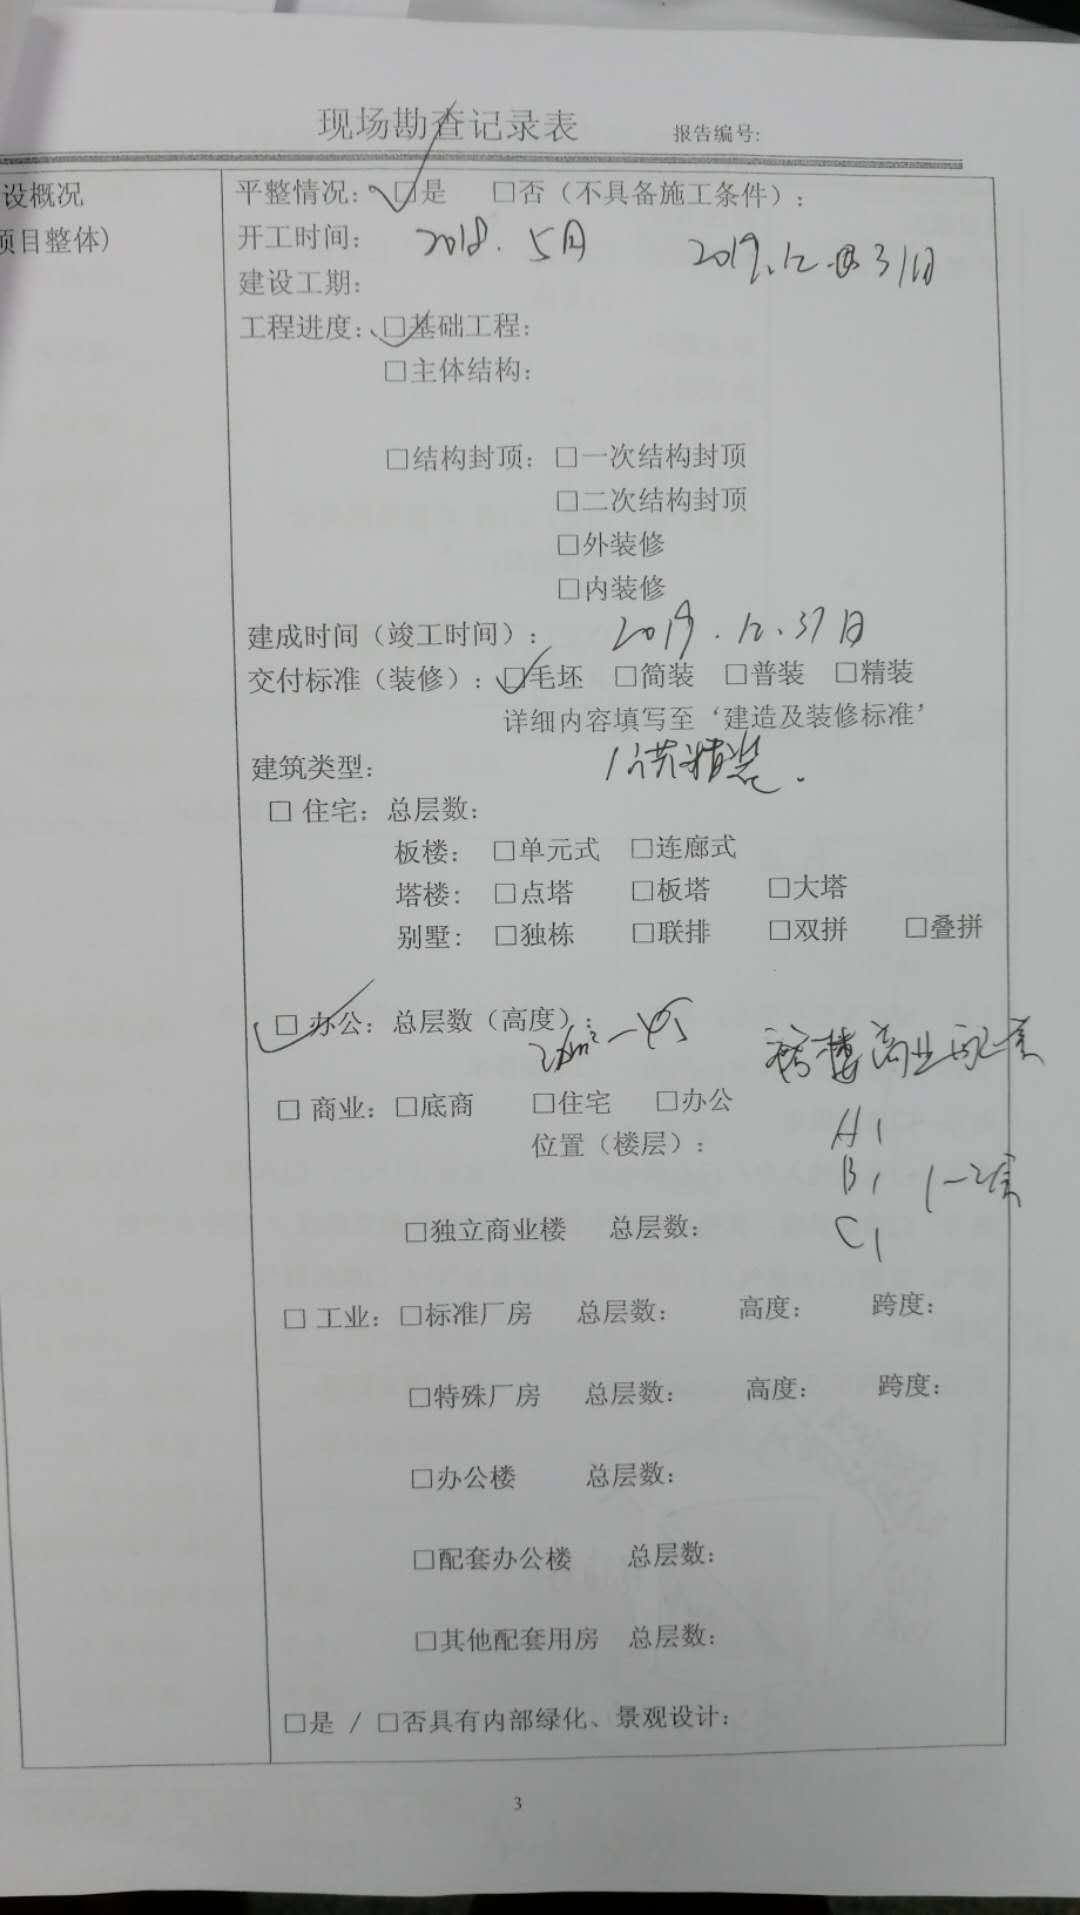 现场勘查记录表 报告编号:
设概况
项目整体)
平整情况: □是 □否（不具备施工条件）:
开工时间: 2018.5月 2019.12.31日
建设工期:
工程进度: □基础工程:
□主体结构:
□结构封顶: □一次结构封顶
□二次结构封顶
□外装修
□内装修
建成时间（竣工时间）: 2019.12.31日
交付标准（装修）: □毛坯 □简装 □普装 □精装
详细内容填写至‘建造及装修标准’
精装.
建筑类型:
□ 住宅: 总层数:
板楼: □单元式 □连廊式
塔楼: □点塔 □板塔 □大塔
别墅: □独栋 □联排 □双拼 □叠拼
□ 办公: 总层数（高度）:
楼商业配套
□ 商业: □底商 □住宅 □办公
A1
位置（楼层）:
B1 1-2层
□独立商业楼 总层数:
C1
□ 工业: □标准厂房 总层数: 高度: 跨度:
□特殊厂房 总层数: 高度: 跨度:
□办公楼 总层数:
□配套办公楼 总层数:
□其他配套用房 总层数:
□是 / □否具有内部绿化、景观设计:
3